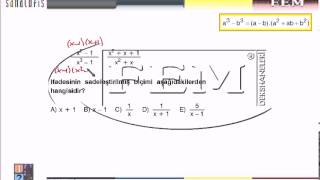 SANALDERS
EEM
a³ - b³ = (a - b).(a² + ab + b²)
(x-1)(x+1)
x² - 1
x² + x + 1
x³ - 1
x² + x
(x-1)(x²
FEM
DERSHANELERİ
ifadesinin sadeleştirilmiş biçimi aşağıdakilerden
hangisidir?
A) x + 1 B) x - 1 C) 1/x D) 1/(x + 1) E) 5/(x - 1)